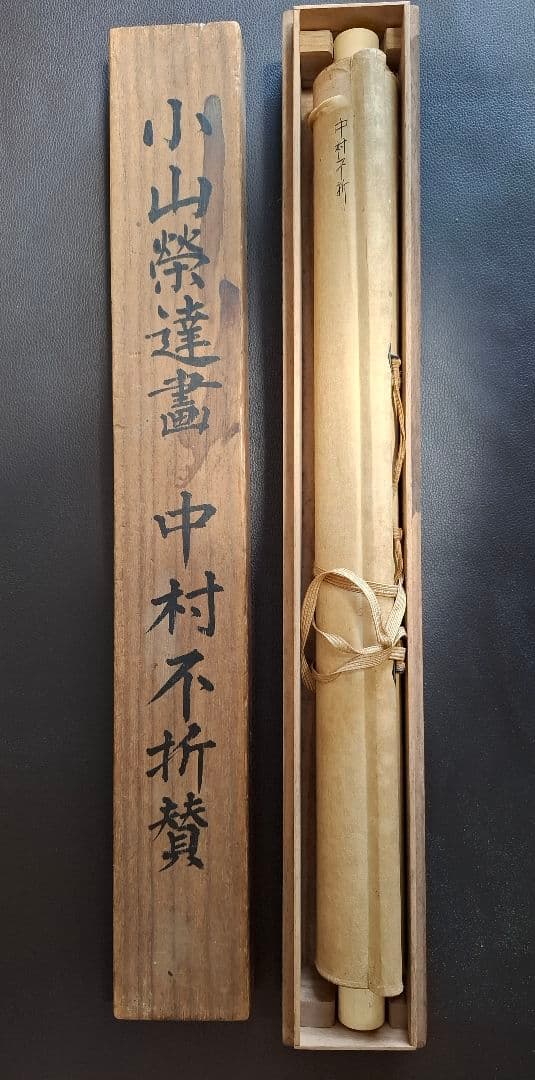 小山榮達畵 中村不折賛
中村不折